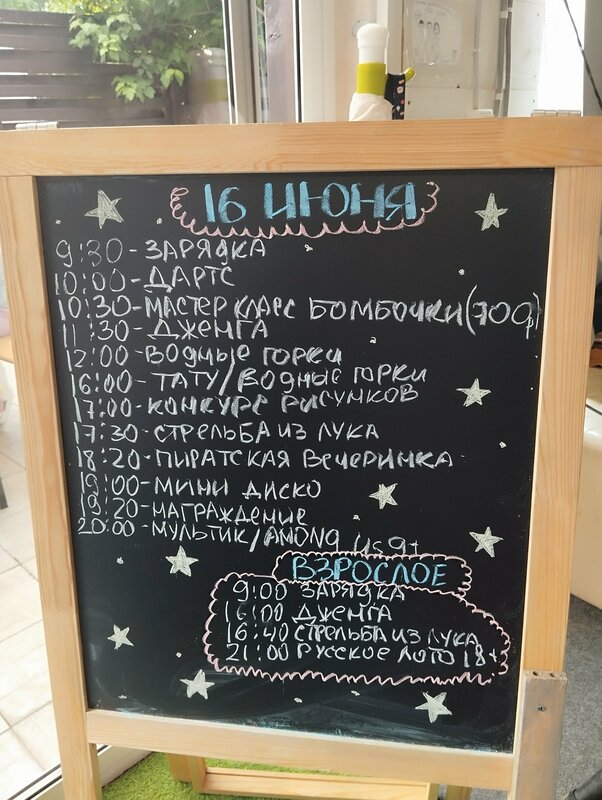 16 ИЮНЯ
9:30-ЗАРЯДКА
10:00-ДАРТС
10:30-МАСТЕР КЛАСС БОМБОЧКИ(700р)
11:30-ДЖЕНГА
12:00-ВОДНЫЕ ГОРКИ
16:00-ТАТУ/ВОДНЫЕ ГОРКИ
17:00-КОНКУРС РИСУНКОВ
17:30-СТРЕЛЬБА ИЗ ЛУКА
18:20-ПИРАТСКАЯ ВЕЧЕРИНКА
19:00-МИНИ ДИСКО
19:20-НАГРАЖДЕНИЕ
20:00-МУЛЬТИК/AMONG US 9+
ВЗРОСЛОЕ
9:00 ЗАРЯДКА
16:00 ДЖЕНГА
16:40 СТРЕЛЬБА ИЗ ЛУКА
21:00 РУССКОЕ ЛОТО 18+